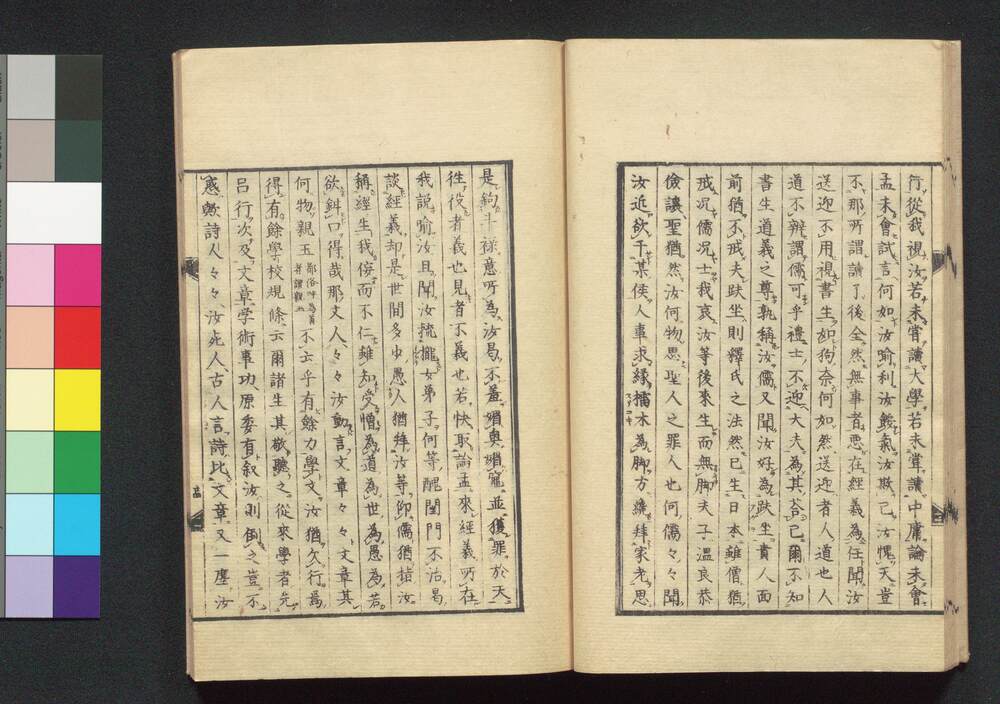 行從我視汝若未嘗讀大學若未嘗讀中庸論未會
孟未會試言何如汝喻利汝餒氣汝欺己汝愧天豈
不那所謂讀了後全然無事者悪在經義為任聞汝
送迎不用視書生如狗奈何如然送迎者人道也人
道不辨謂儒可乎禮士不迎大夫為其荅己爾不知
書生道義之尊孰稱汝儒又聞汝好為趺坐貴人面
前猶不戒夫趺坐則釋氏之法然已生日本雖僧猶
戒况儒况士我哀汝等後來生而無脚夫子温良恭
儉讓聖猶然汝何物思聖人之罪人也何儒々々聞
汝近欲干某侯人車求縁擂木為脚方纔拜家老思
是鉤斗禄意所為汝曷不羞媚奥媚竈並獲罪於天
徃役者義也見者不義也若快取論孟來經義所在
我説喻汝且聞汝梳攏女弟子何等醜閨門不治曷
談經義却是世間多少愚人猶拜汝等仰儒猶指汝
稱經生我傍而不仁雖知受憎為道為世為愚為若
欲糾口得哉那文人々々汝動言文章々々文章其
何物親玉不云乎有餘力學文汝猶欠行為
得有餘學校規條云爾諸生其敬聽之從來學者先
吕行次及文章学術事功原委有叙汝則倒之豈不
惑歟詩人々々汝死人古人言詩比文章又一塵汝